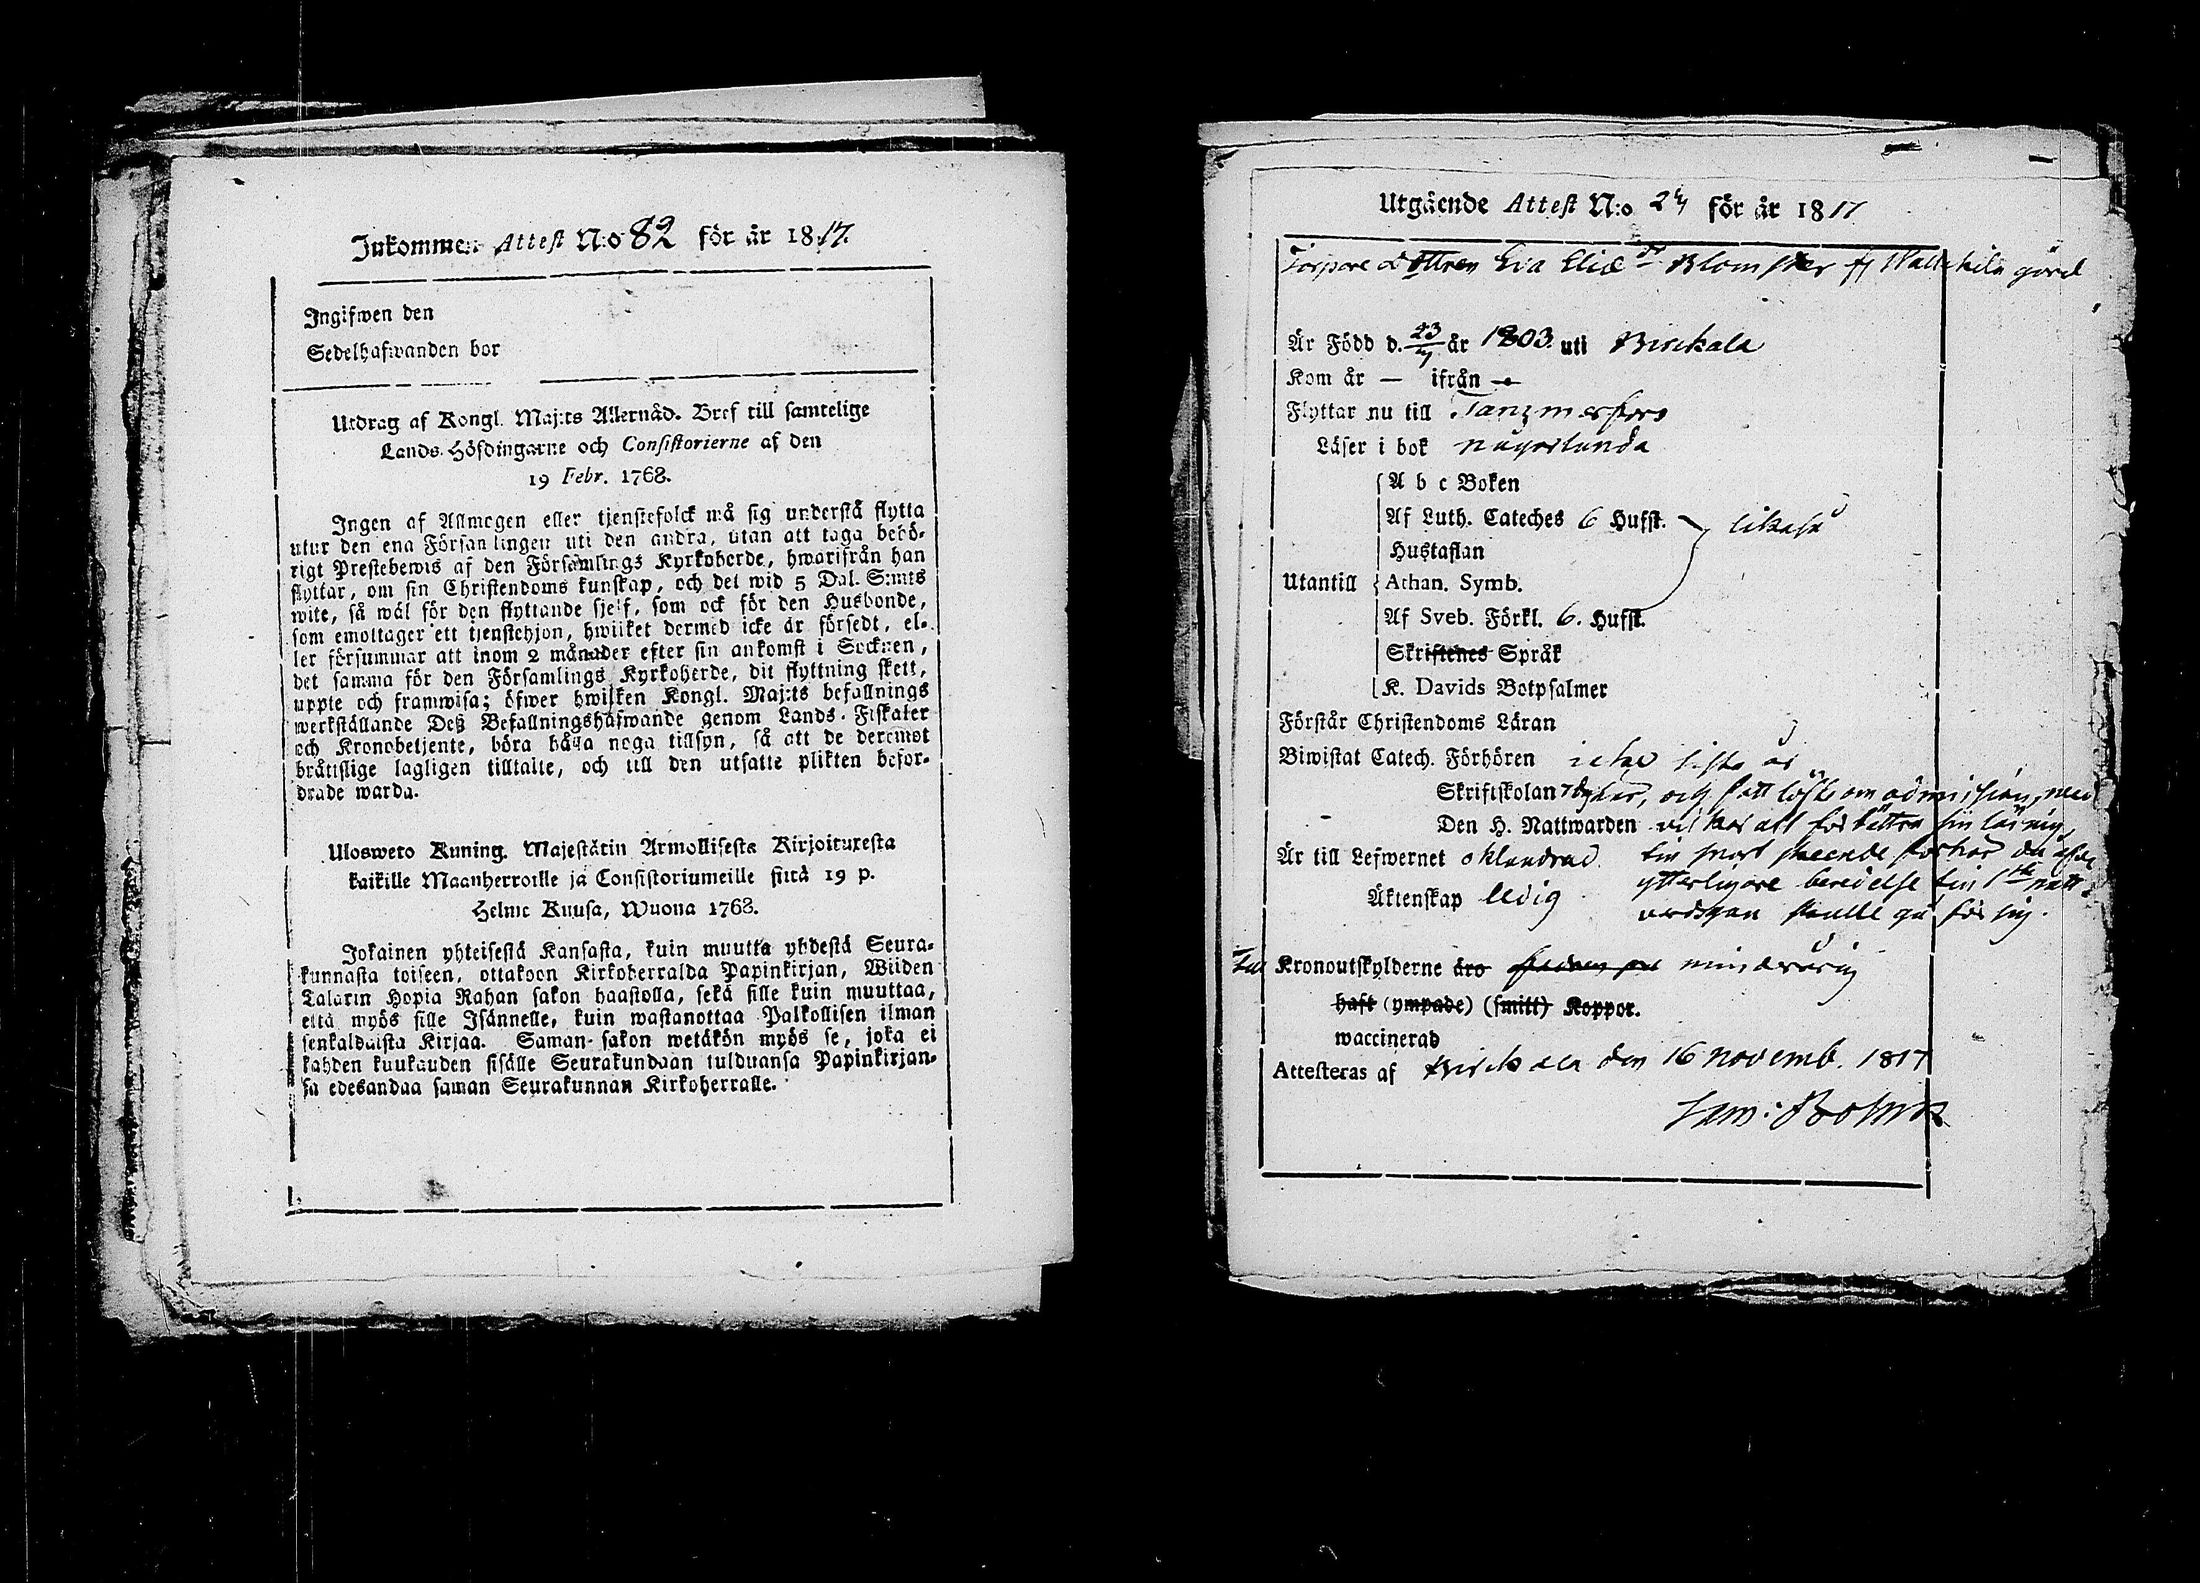 Inkommen Attest N:o 82 för år 1817.
Ingifwen den
Sedelhafwanden bor
Utdrag af Kongl. Maj:ts Allernåd. Bref till samtelige
Lands-Höfdingarne och Consistorierne af den
19 Febr. 1768.
Ingen af Allmogen eller tjenstefolck må sig understå flytta
utur den ena Församlingen uti den andra, utan att taga behö-
rigt Prestebewis af den Församlings Kyrkoherde, hwarifrån han
flyttar, om sin Christendoms kunskap, och det wid 5 Dal. S:mts
wite, så wäl för den flyttande sjelf, som ock för den Husbonde,
som emottager ett tjenstehjon, hwilket dermed icke är försedt, el-
ler försummar att inom 2 månader efter sin ankomst i Socknen,
det samma för den Församlings Kyrkoherde, dit flyttning skett,
uppte och framwisa; öfwer hwilken Kongl. Maj:ts befallnings
werkställande Deß Befallningshafwande genom Lands-Fiskaler
och Kronobetjente, böra hålla noga tillsyn, så att de deremot
bråttslige lagligen tilltalte, och till den utsatte plikten befor-
drade warda.
Ulosweto Kuning. Majestätin Armollisesta Kirjoituxesta
kaikille Maanherroille ja Consistoriumeille siitä 19 p.
Helme Kuusa, Wuona 1768.
Jokainen yhteisestä Kansasta, kuin muutta yhdestä Seura-
kunnasta toiseen, ottakoon Kirkoherralda Papinkirjan, Wiiden
Talarin Hopia Rahan sakon haastolla, sekä sille kuin muuttaa,
että myös sille Isännelle, kuin wastanottaa Palkollisen ilman
senkaldaista Kirjaa. Saman-sakon wetäkön myös se, joka ei
kahden kuukauden sisälle Seurakundaan tulduansa Papinkirjan-
sa edesandaa saman Seurakunnan Kirkoherralle.
Utgående Attest N:o 24 för år 1817
Torpare Dottren Eva Eliæ dr Blomster fr gård
Är Född d. 23/7 år 1803. uti Birckala
Kom år — ifrån —
Flyttar nu till Tammerfors
Läser i bok någorlunda
A b c Boken
Af Luth. Cateches 6 Hufst. likaså
Hustaflan
Utantill Athan. Symb.
Af Sveb. Förkl. 6. Hufst.
Skriftenes Språk
K. Davids Botpsalmer
Förstår Christendoms Läran
Biwistat Catech. Förhören icke sista år
Skriftskolan och fått löfte om admission, med
Den H. Nattwarden vilkor att förbättra sin läsning,
Är till Lefwernet oklandrad
ytterligare beredelse 1sta natt-
Äktenskap ledig
vardsgån skulle gå för sig.
Till Kronoutskylderne äro minderårig
haft (ympade) (smitt) Koppor.
waccinerad
Attesteras af Birckala den 16 Novemb. 1817